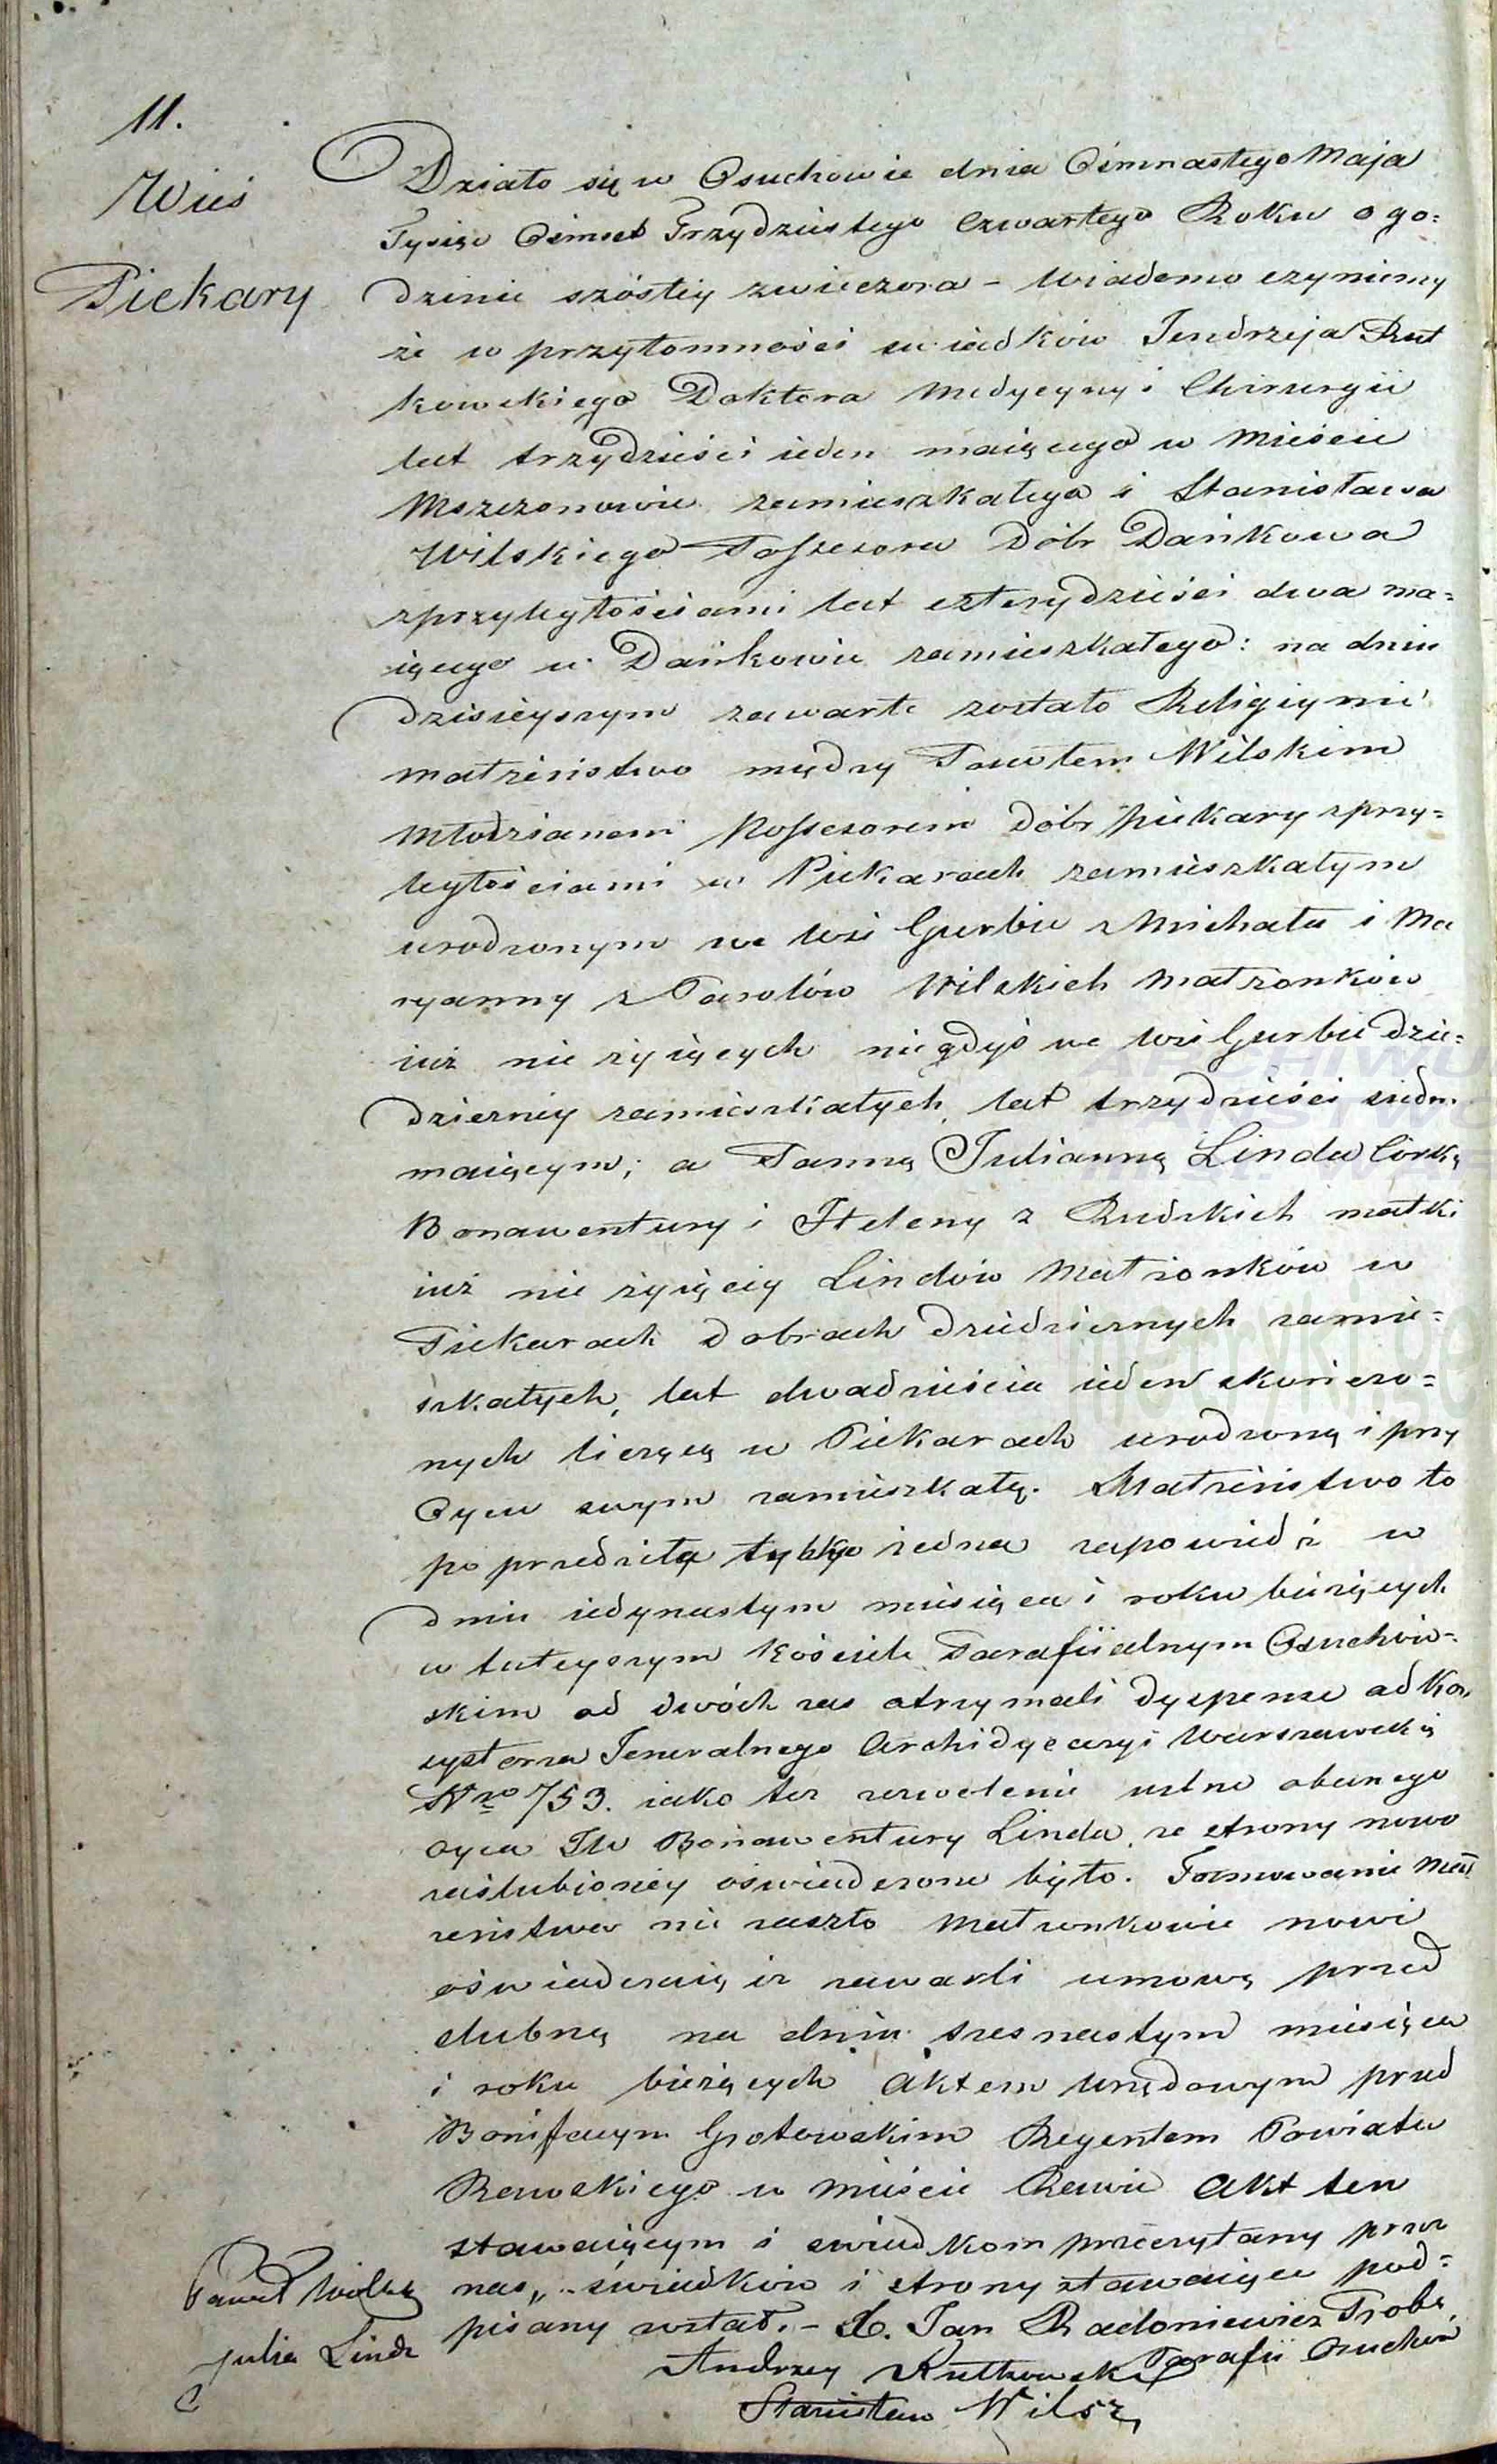 11.
Wieś
Piekary
Działo się w Osuchowie dnia Osmnastego Maja
Tysiąc Osmset Trzydziestego Czwartego Roku o go=
dzinie szóstey zwieczora – Wiadomo czyniemy
że w przytomności świadków Jendrzeja Rut
kowskiego Doktora Medycyny i Chirurgii
lat trzydzieści ieden maiącego w Mieście
Mszczonowie zamieszkałego i Stanisława
Wilskiego Possesora Dóbr Dańkowa
zprzyległościami lat czterydzieści dwa ma=
iącego w Dańkowie zamieszkałego: na dniu
dzisieyszym zawarte zostało Religiynie
małżeństwo między Pawłem Wilskim
Młodzianem Possesorem Dóbr Piekary zprzy=
ległościami w Piekarach zamieszkałym
urodzonym we wsi Gurbie z Michała i Ma
ryanny z Pawłów Wilskich Małżonków
iuż nie żyiących niegdyś we wsi Gurbie Dzie=
dziczney zamieszkałych, lat trzydzieści siedm
maiącym; a Panną Julianną Linda Córką
Bonawentury i Heleny z Rudzkich matki
iuż nie żyiącey Lindów Małżonków w
Piekarach dobrach dziedzicznych zamie=
szkałych, lat dwadzieścia ieden skończo=
nych liczącą w Piekarach urodzoną i przy
Oycu swym zamieszkałą. Małżeństwo to
poprzedziła tylko iedna zapowiedź w
dniu iedynastym miesiąca i roku bieżących
w tuteyszym Kościele Parafiialnym Osuchow=
skim od dwóch zas otrzymali dyspense od Kon
systorza Jeneralnego Archidyecezyi Warszawskiy
Nro 753. iako też zezwolenie ustne obecnego
oyca JW Bonawentury Linda, ze strony nowo
zaślubioney oświadczone było. Tamowanie Mał
żeństwa nie zaszło Małżonkowie nowi
oświadczaią iż zawarli umowę przed
ślubną na dniu szesnastym miesiąca
i roku bieżących Aktem Urzędowym przed
Bonifacym Grotowskim Regentem Powiatu
Rawskiego w Mieście Rawie Akt ten
stawaiącym i świadkom przeczytany przez
nas, świadków i strony stawaiące pod=
pisany został. – X. Jan Radoniewicz Prob.
Parafii Osuchow
Andrzey Rutkowski
Stanisław Wilski
Paweł Wilski
Julia Linda